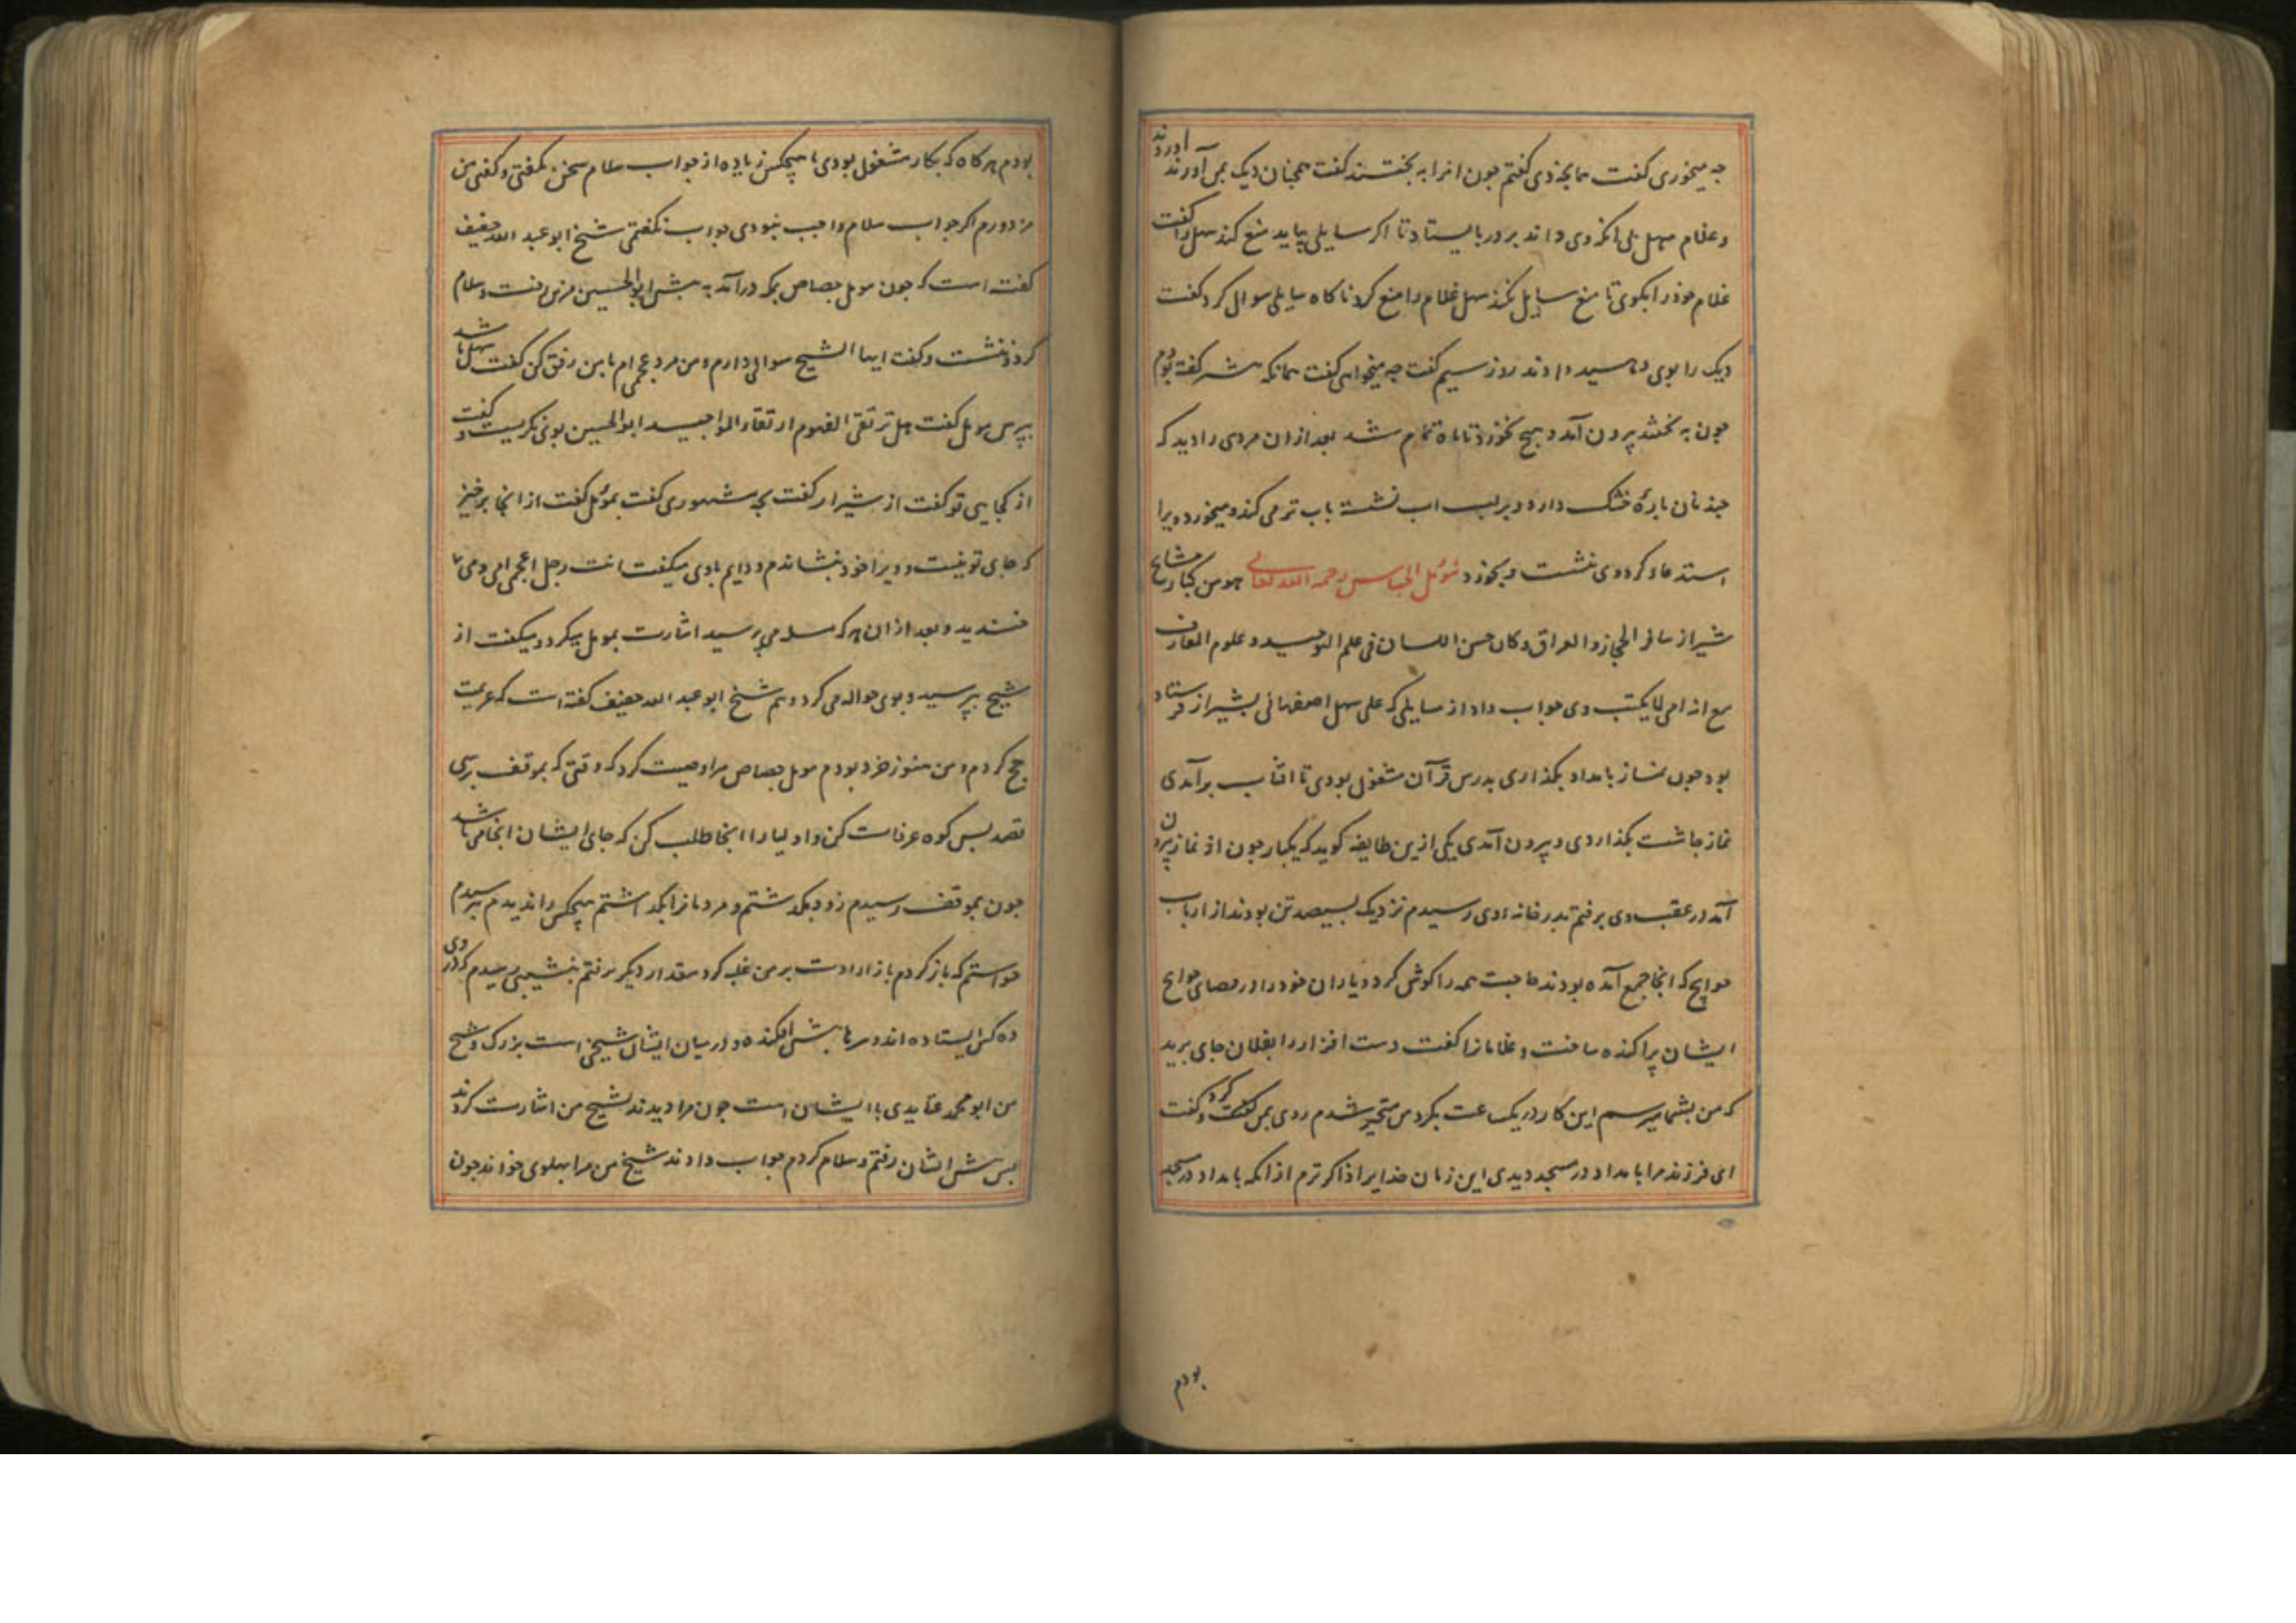 چه میخوری گفت سکبا بخ دی گفتم چون انرا به بختند گفت همچنان دیک بمن آورند اوردند
وغلام سهل بی انکه وی داند بر در بایستاد تا اکر سایلی بیاید منع کند سهل را گفت
غلام خود را بکوی تا منع سایل نکند سهل غلام را منع کرد ناکاه سایلی سوال کرد گفت
دیک را بوی دهید دادند روز سیم گفت چه میخواهی گفت همانکه شب گفته بودم
چون به بختند بیرون آمد و هیچ نخورد تا ماه تمام شد بعد از ان مردی را دید که
چند نان باره خشک دارد و بر لب اب نشسته باب تر می کند و میخورد ویرا
استدعا کرد وی نشست و بخورد مؤمل الجصاص رحمه الله تعالی هو من کبار مشایخ
شیراز سافر الحجاز والعراق وکان حسن اللسان فی علم التوحید و علوم المعارف
مع انه امی لا یکتب وی جواب داد از مسایلی که علی سهل اصفهانی بشیراز فرستاد
بود چون نماز بامداد بکذاردی بدرس قرآن مشغول بودی تا افتاب برآمدی
نماز چاشت بکذاردی و بیرون آمدی یکی ازین طایفه کوید که یکبار چون از نماز بیرون
آمد در عقب وی برفتم بدر خانه وی رسیدم نزدیک بسیصد تن بودند از ارباب
حوایج که انجا جمع آمده بودند حاجت همه را کوش کرد و یاران خود را در قضای حوایج
ایشان براکنده ساخت و غلامانرا گفت دست افزار را بفلان جای برید
که من بشما میرسم این کار در یک ساعت بکرد من متحیر شدم روی بمن کرد و گفت
ای فرزند مرا بامداد در مسجد دیدی این زمان خدایرا ذاکر ترم از انکه بامداد در مسجد
بودم
بودم هرکاه که بکار مشغول بودی با هیچکس زیاده از جواب سلام سخن نکفتی و کفتی من
مزدورم اکر جواب سلام واجب نبودی جواب نکفتمی شیخ ابو عبد الله خفیف
کفته است که چون مومل جصاص بمکه درآمد به بیش ابو الحسین مزین رفت و سلام
کرد و بنشست و کفت ایها الشیخ سوالی دارم و من مرد عجمی ام با من رفق کن کفت سهل باشد
ببرس مومل کفت هل ترتقی الفهوم ارتقاء المواجید ابو الحسین بوی نکریست و کفت
از کجایی تو کفت از شیراز کفت بچه مشهوری کفت بمؤمل کفت از انجا برخیز
که جای تو نیست و ویرا خود بنشاندم و دایم با وی میکفت انت رجل اعجمی امی و می
خندید و بعد از ان هر که مسله می برسید اشارت بمومل میکرد و میکفت از
شیخ ببرسید و بوی حواله می کرد و هم شیخ ابو عبد الله خفیف کفته است که عزیمت
حج کردم و من هنوز خرد بودم مومل جصاص مرا وصیت کرد که وقتی که بموقف برسی
قصد بس کوه عرفات کن و اولیا را انجا طلب کن که جای ایشان انجا می باشد
چون بموقف رسیدم زود بکذشتم و مردمانرا بکذاشتم هیچکس را ندیدم بترسیدم
خواستم که باز کردم باز ارادت بر من غلبه کرد مقدار دیکر برفتم بنشیبی رسیدم که در وی
ده کس ایستاده اند و سرها بیش افکنده و در میان ایشان شیخی است بزرک و شیخ
من ابو محمد عتایدی با ایشان است چون مرا دیدند بشیخ من اشارت کردند
بس بیش ایشان رفتم و سلام کردم جواب دادند شیخ من مرا ببهلوی خواند چون